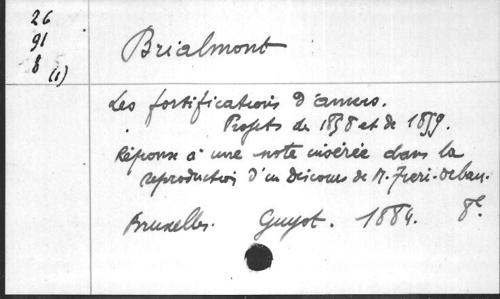 26
91
8 (1)
Brialmont
Les fortifications d'anvers.
Projets de 1858 et de 1859.
Réponse à une note insérée dans la
reproduction d'un Discours de M. Frère-Orban.
Bruxelles. Guyot. 1884. 8º.